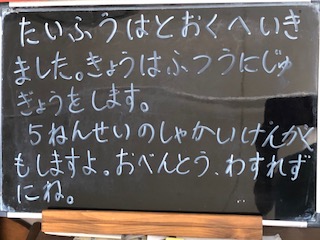 たいふうはとおくへいき
ました。きょうはふつうにじゅ
ぎょうをします。
５ねんせいのしゃかいけんがく
もしますよ。おべんとう、わすれず
にね。